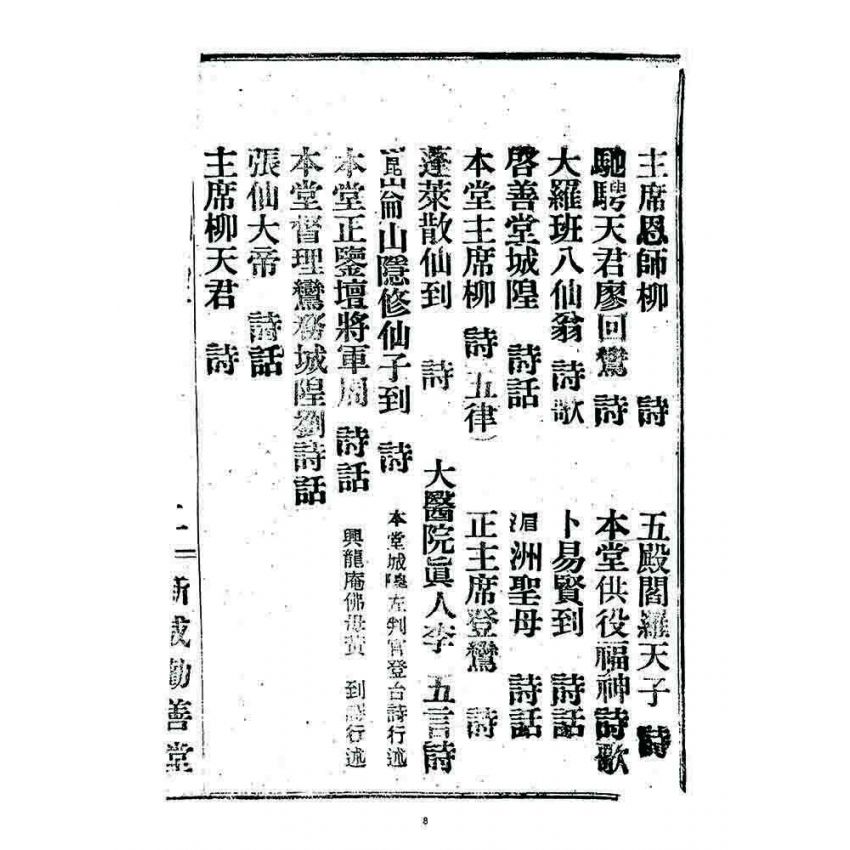 主席恩師柳 詩 五殿閻羅天子 詩
馳騁天君廖回鸞 詩 本堂供役福神詩歌
大羅班八仙翁 詩歌 卜易賢到 詩話
啓善堂城隍 詩話 湄洲聖母 詩話
本堂主席柳 詩(五律) 正主席登鸞 詩
蓬萊散仙到 詩 大醫院眞人李 五言詩
崑崙山隱修仙子到 詩 本堂城隍左判官登台詩行述
本堂正鑒壇將軍周 詩話 興龍庵佛母 到 行述
本堂督理鸞務城隍劉詩話
張仙大帝 詩話
主席柳天君 詩
二 新成勸善堂
8